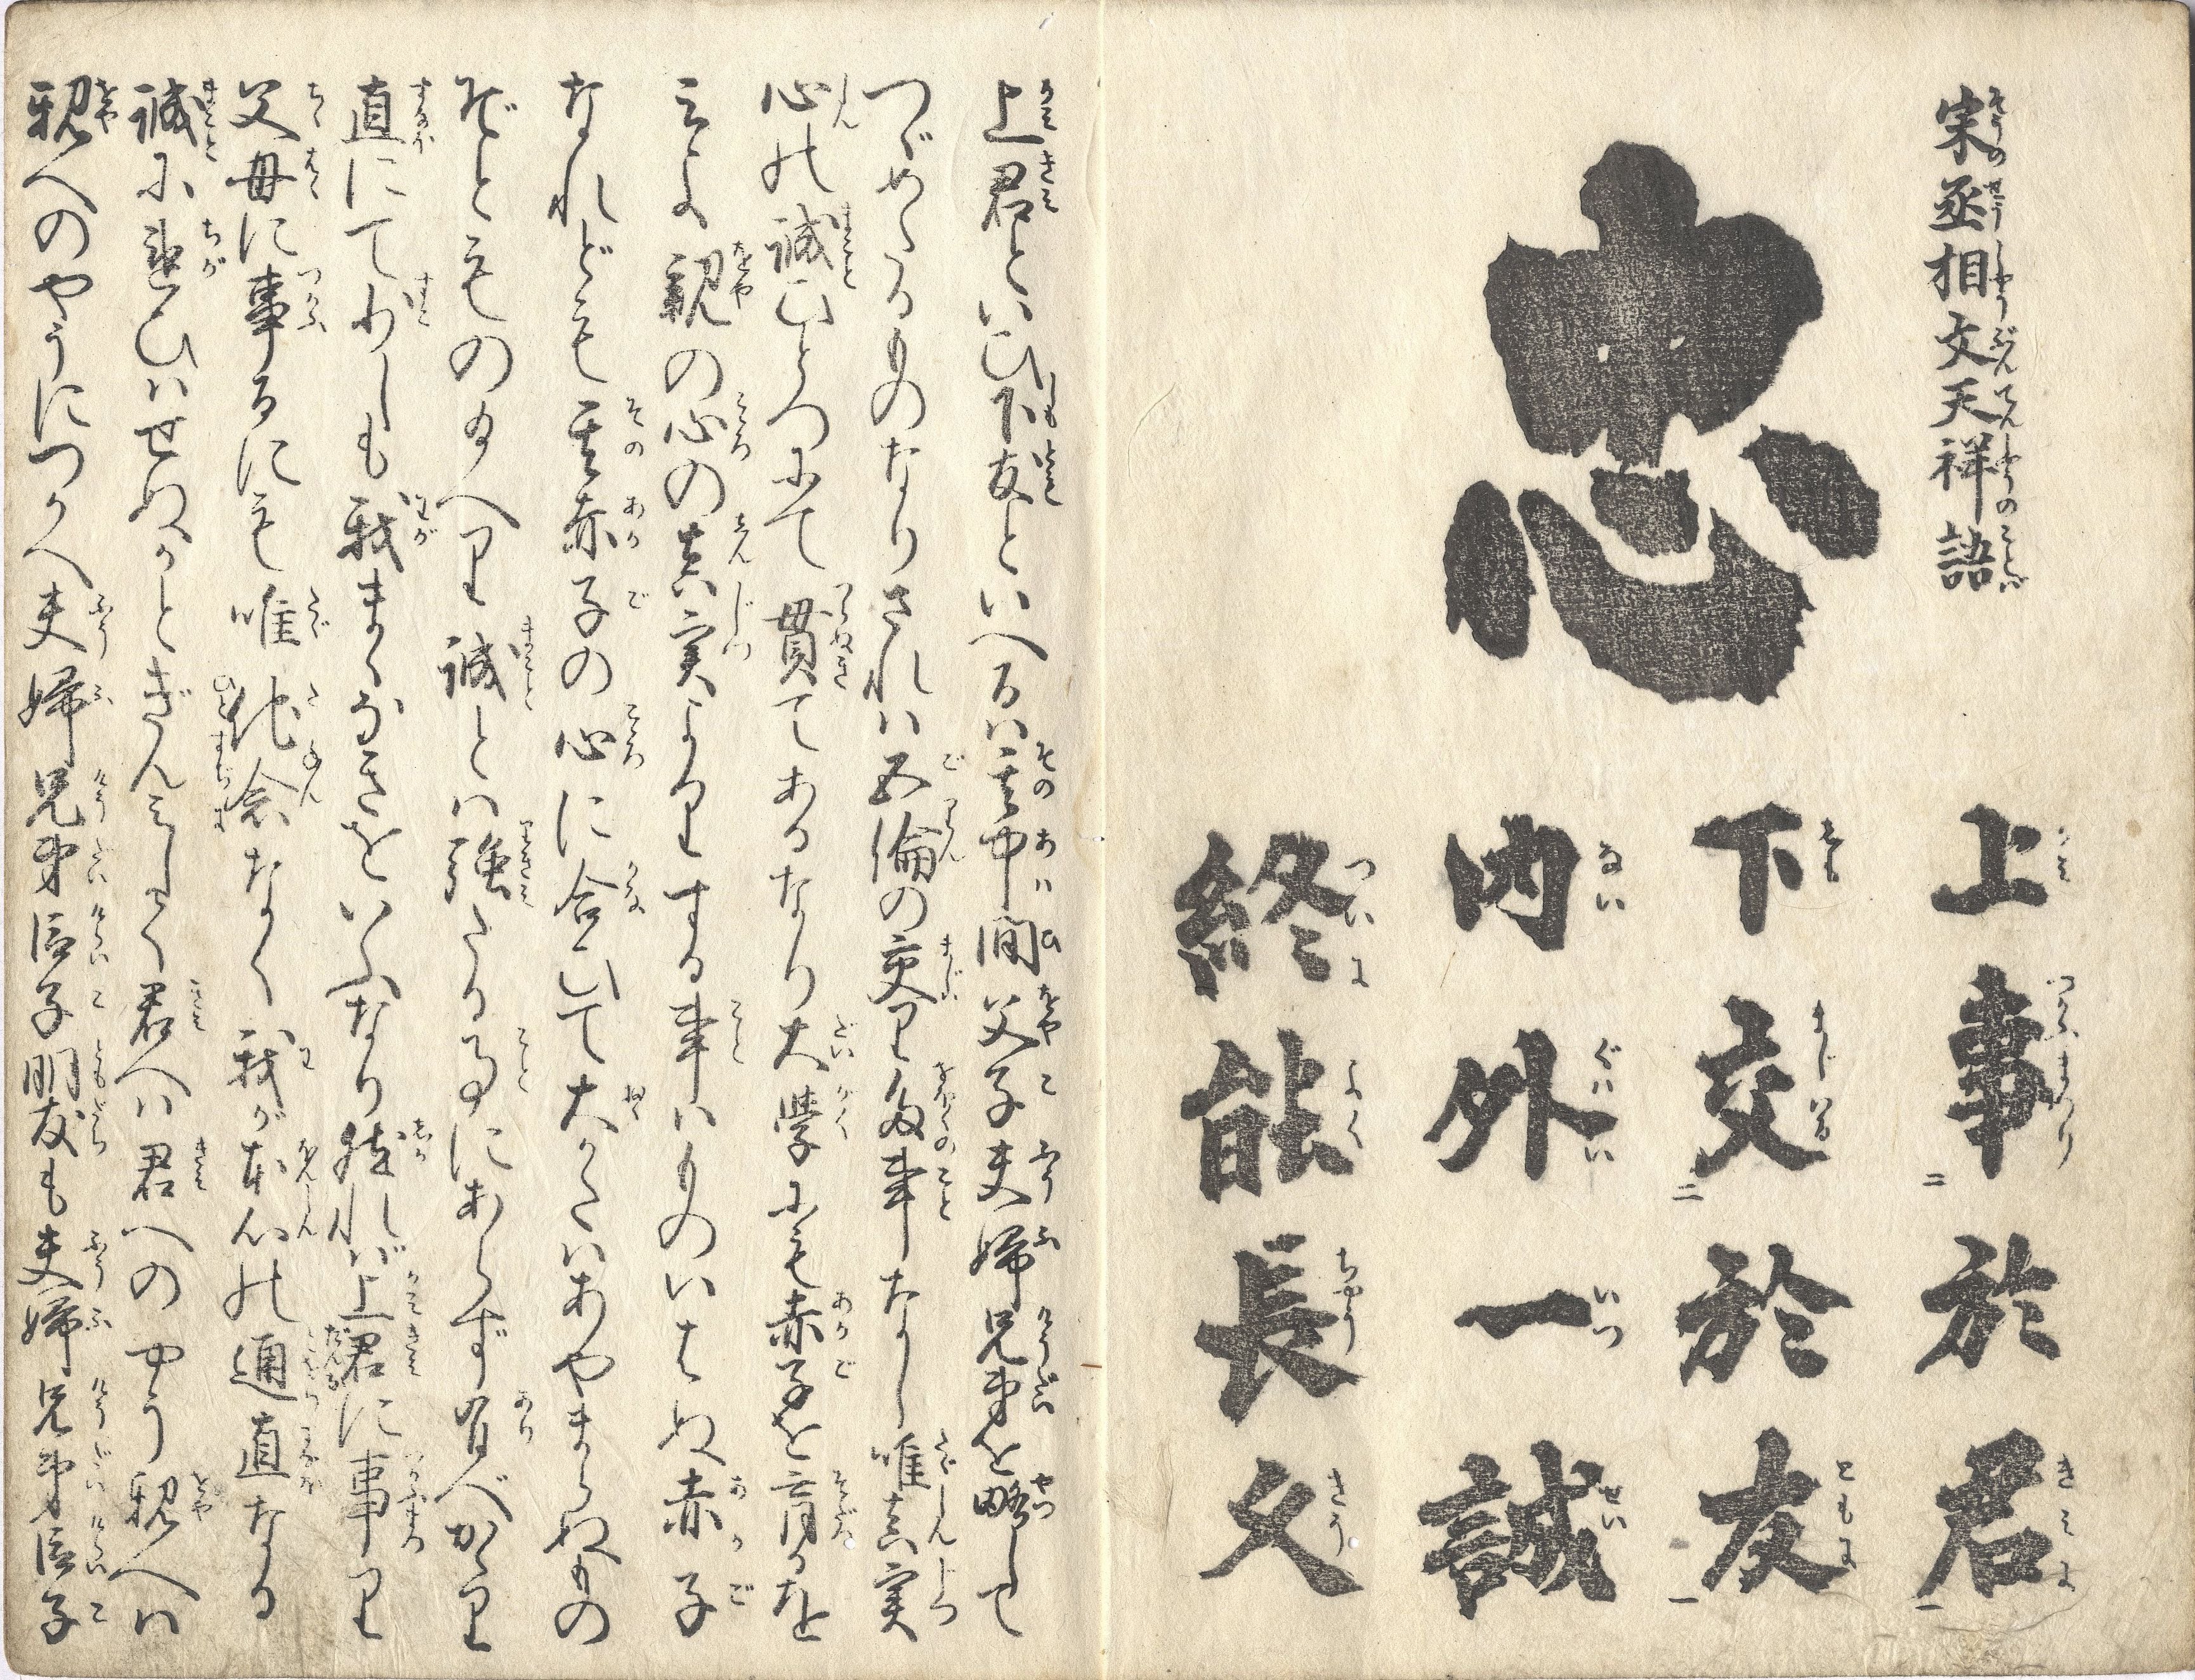 宋丞相文天祥語
忠
上事於君
下交於友
内外一誠
終能長久
上君といひ下友といへるは其中間父子夫婦兄弟を略して
つゞめたるものなりされは五倫の交り多事なし唯真実
心の誠ひとつにて貫てあるなり大学にも赤子を育るを
親の心の真実よりする事はものいはぬ赤子
なれども其赤子の心に合ひて大かたはあやまらぬもの
ぞとものたまへり誠とは強たる事にあらず有べかゝり
直にてわしも我まくなきをいふなり然れば上君に事り
父母に事るにも唯他念なく我が本心の通直なる
誠に違ひはせぬかとぎんみして君へは君へのやう親へは
親へのやうにつかへ夫婦兄弟臣子朋友も夫婦兄弟臣子